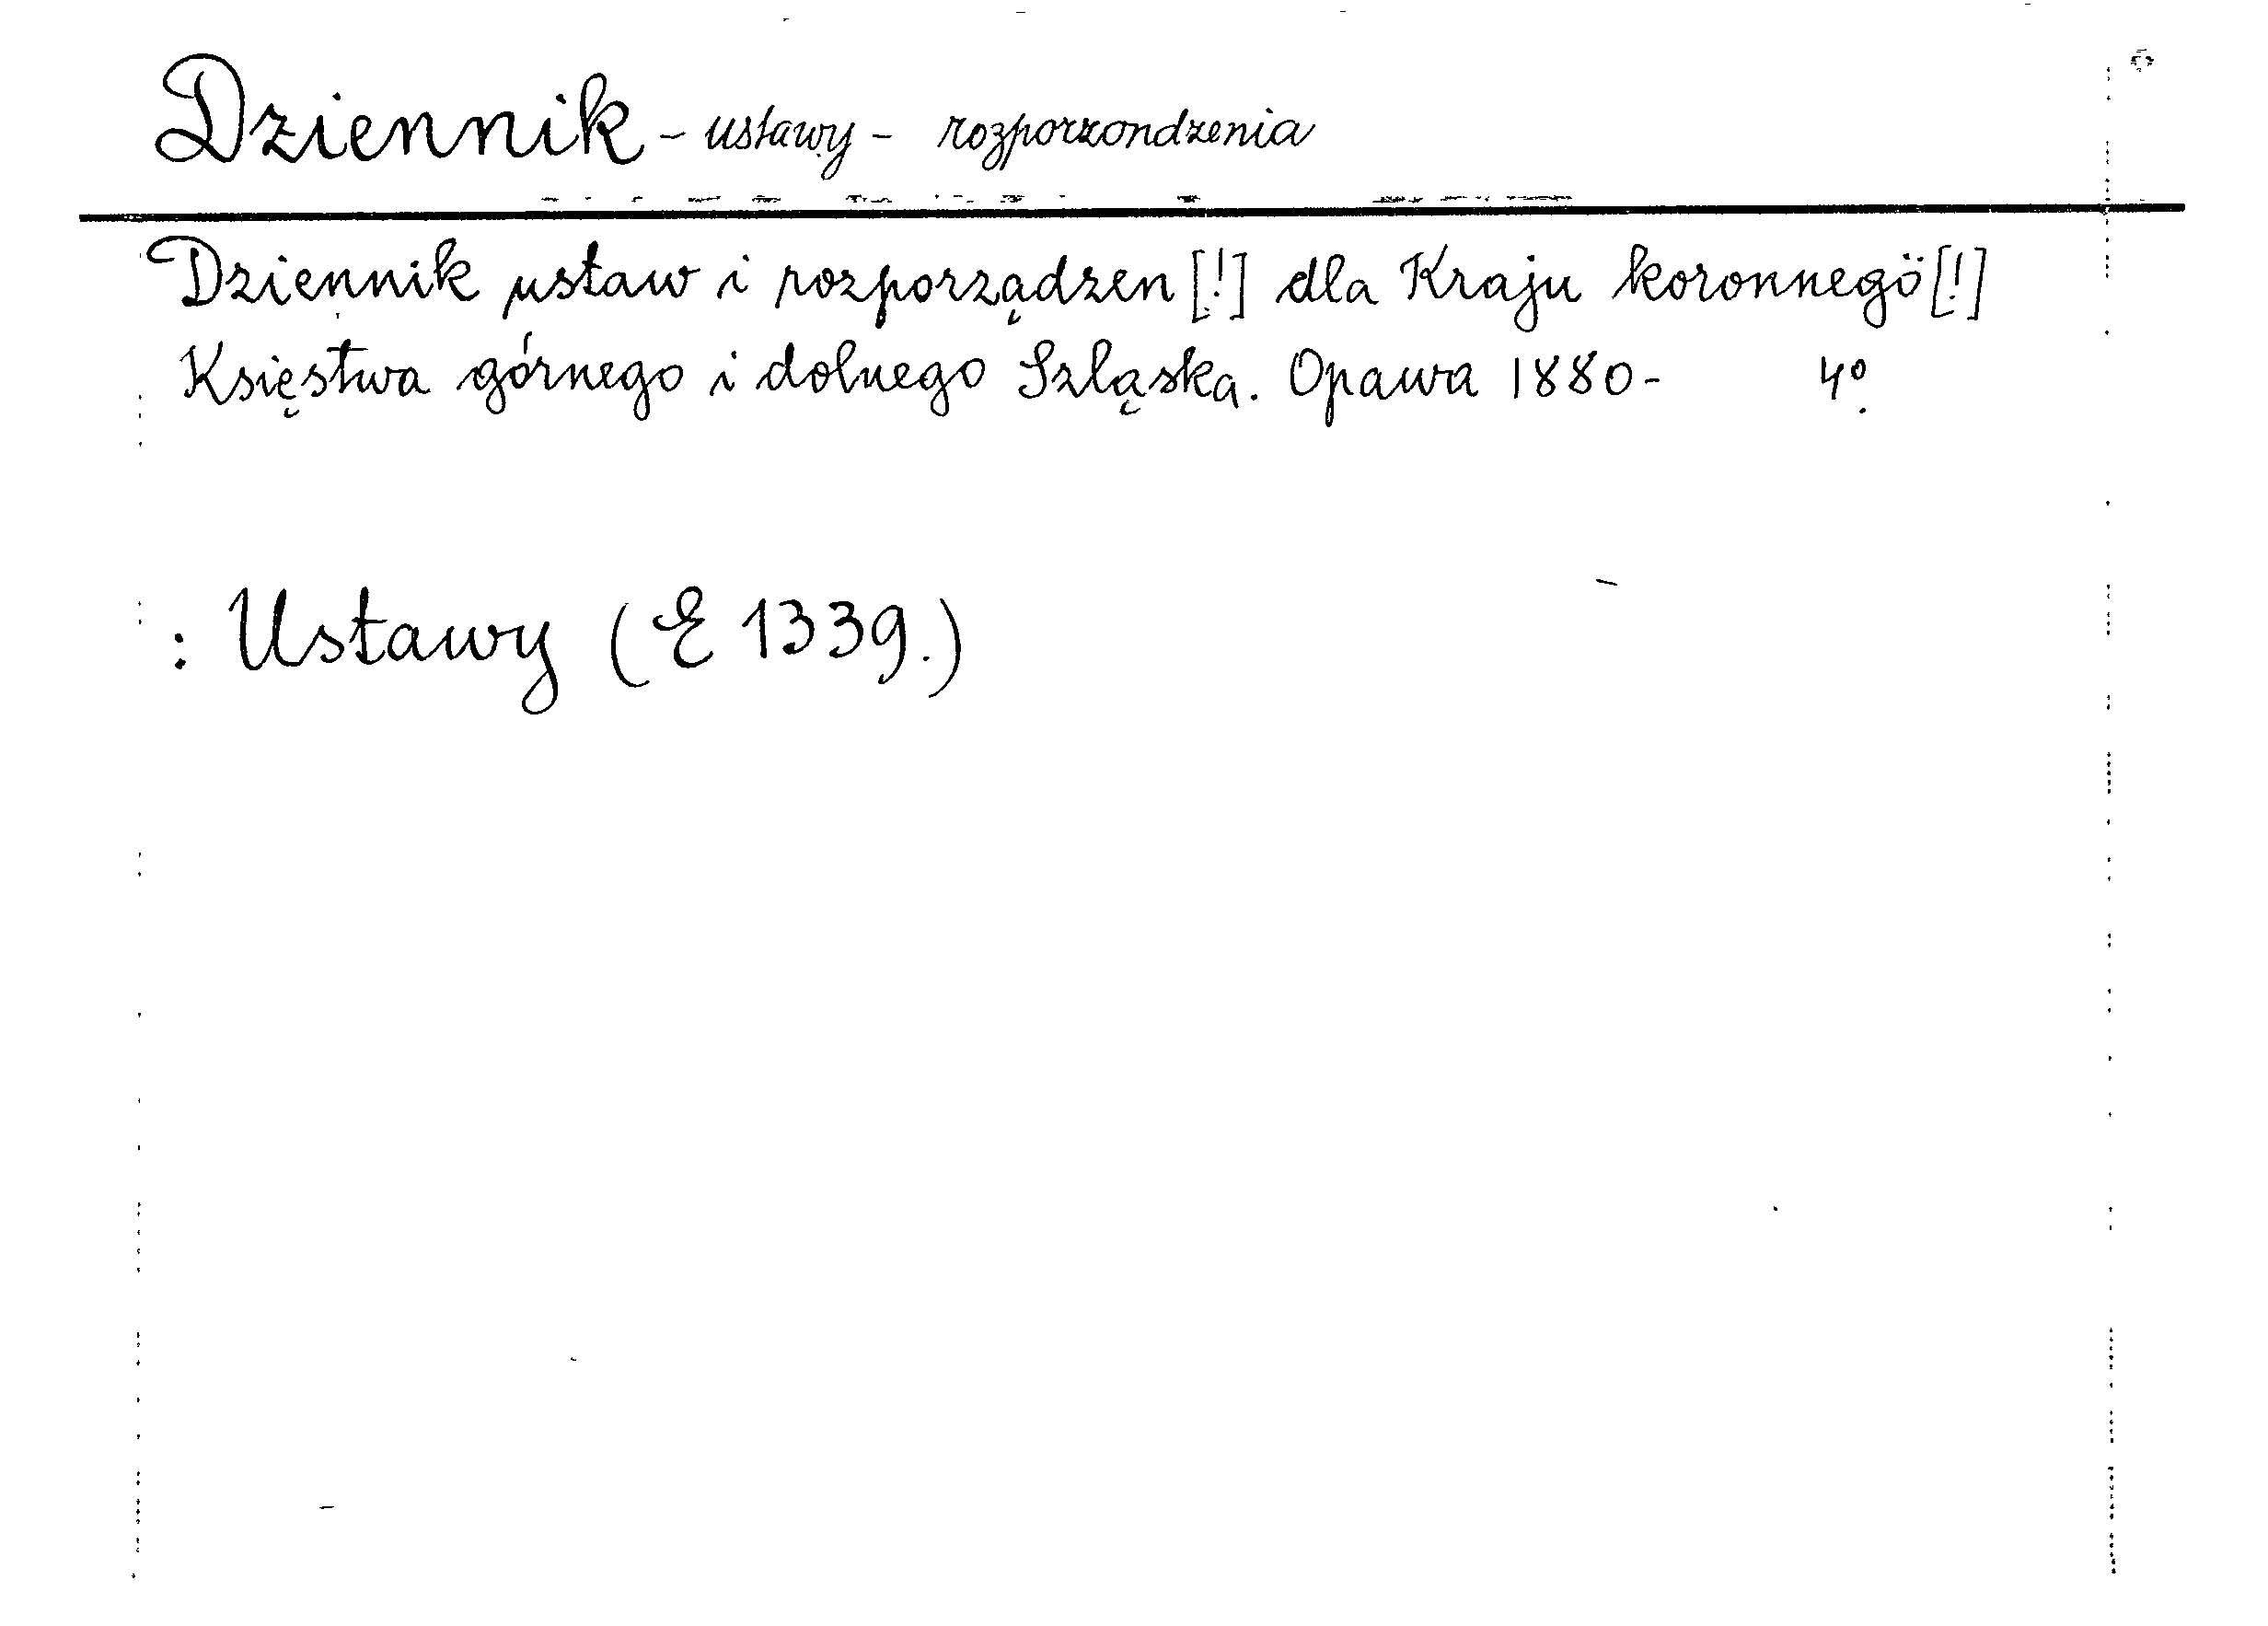 Dziennik - ustawy - rozporzondzenia
Dziennik ustaw i rozporządzen [!] dla Kraju koronnegö [!]
Księstwa górnego i dolnego Szląska. Opawa 1880- 4º.
: Ustawy (E 1339.)